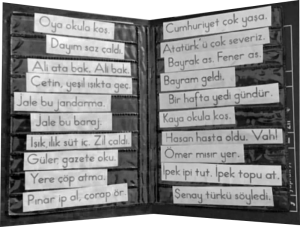 Oya okula koş.
Dayım soz çaldı.
Ali ata bak. Ali bak.
Çetin, yeşil ışıkta geç.
Jale bu jandarma.
Jale bu baraj.
Işık, ılık süt iç. Zil çaldı.
Güler, gazete oku.
Yere çöp atma.
Pınar ip al, çorap ör.
Cumhuriyet çok yaşa.
Atatürk'ü çok severiz.
Bayrak as. Fener as.
Bayram geldi.
Bir hafta yedi gündür.
Kaya okula koş.
Hasan hasta oldu. Vah!
Ömer mısır yer.
İpek ipi tut. İpek topu at.
Şenay türkü söyledi.